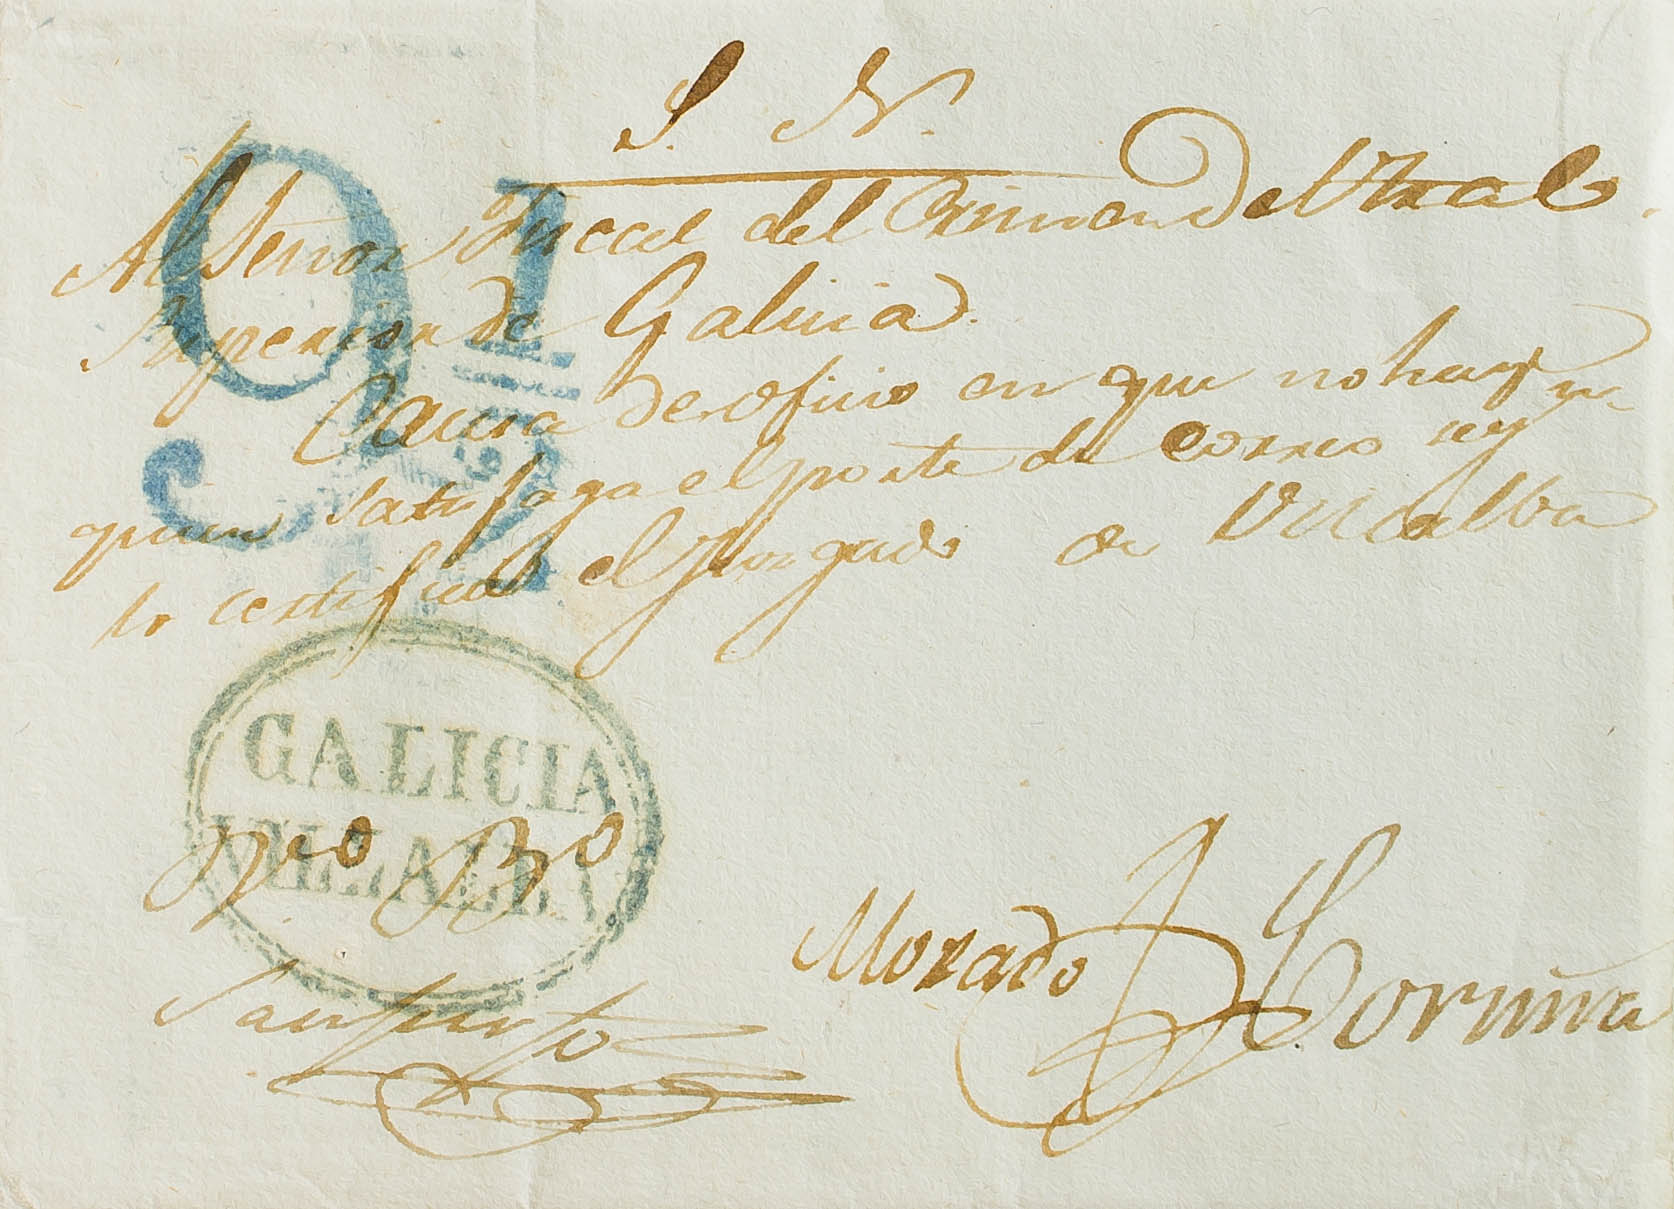 S. N.
Al Señor Fiscal del Crimen del Tral
Superior de Galicia.
Causa de oficio en que no hay
quien satisfaga el porte de correo y
lo certifica el Juzgado de Villalba
9 1/2
GALICIA
VILLALBA
Morado
Coruña